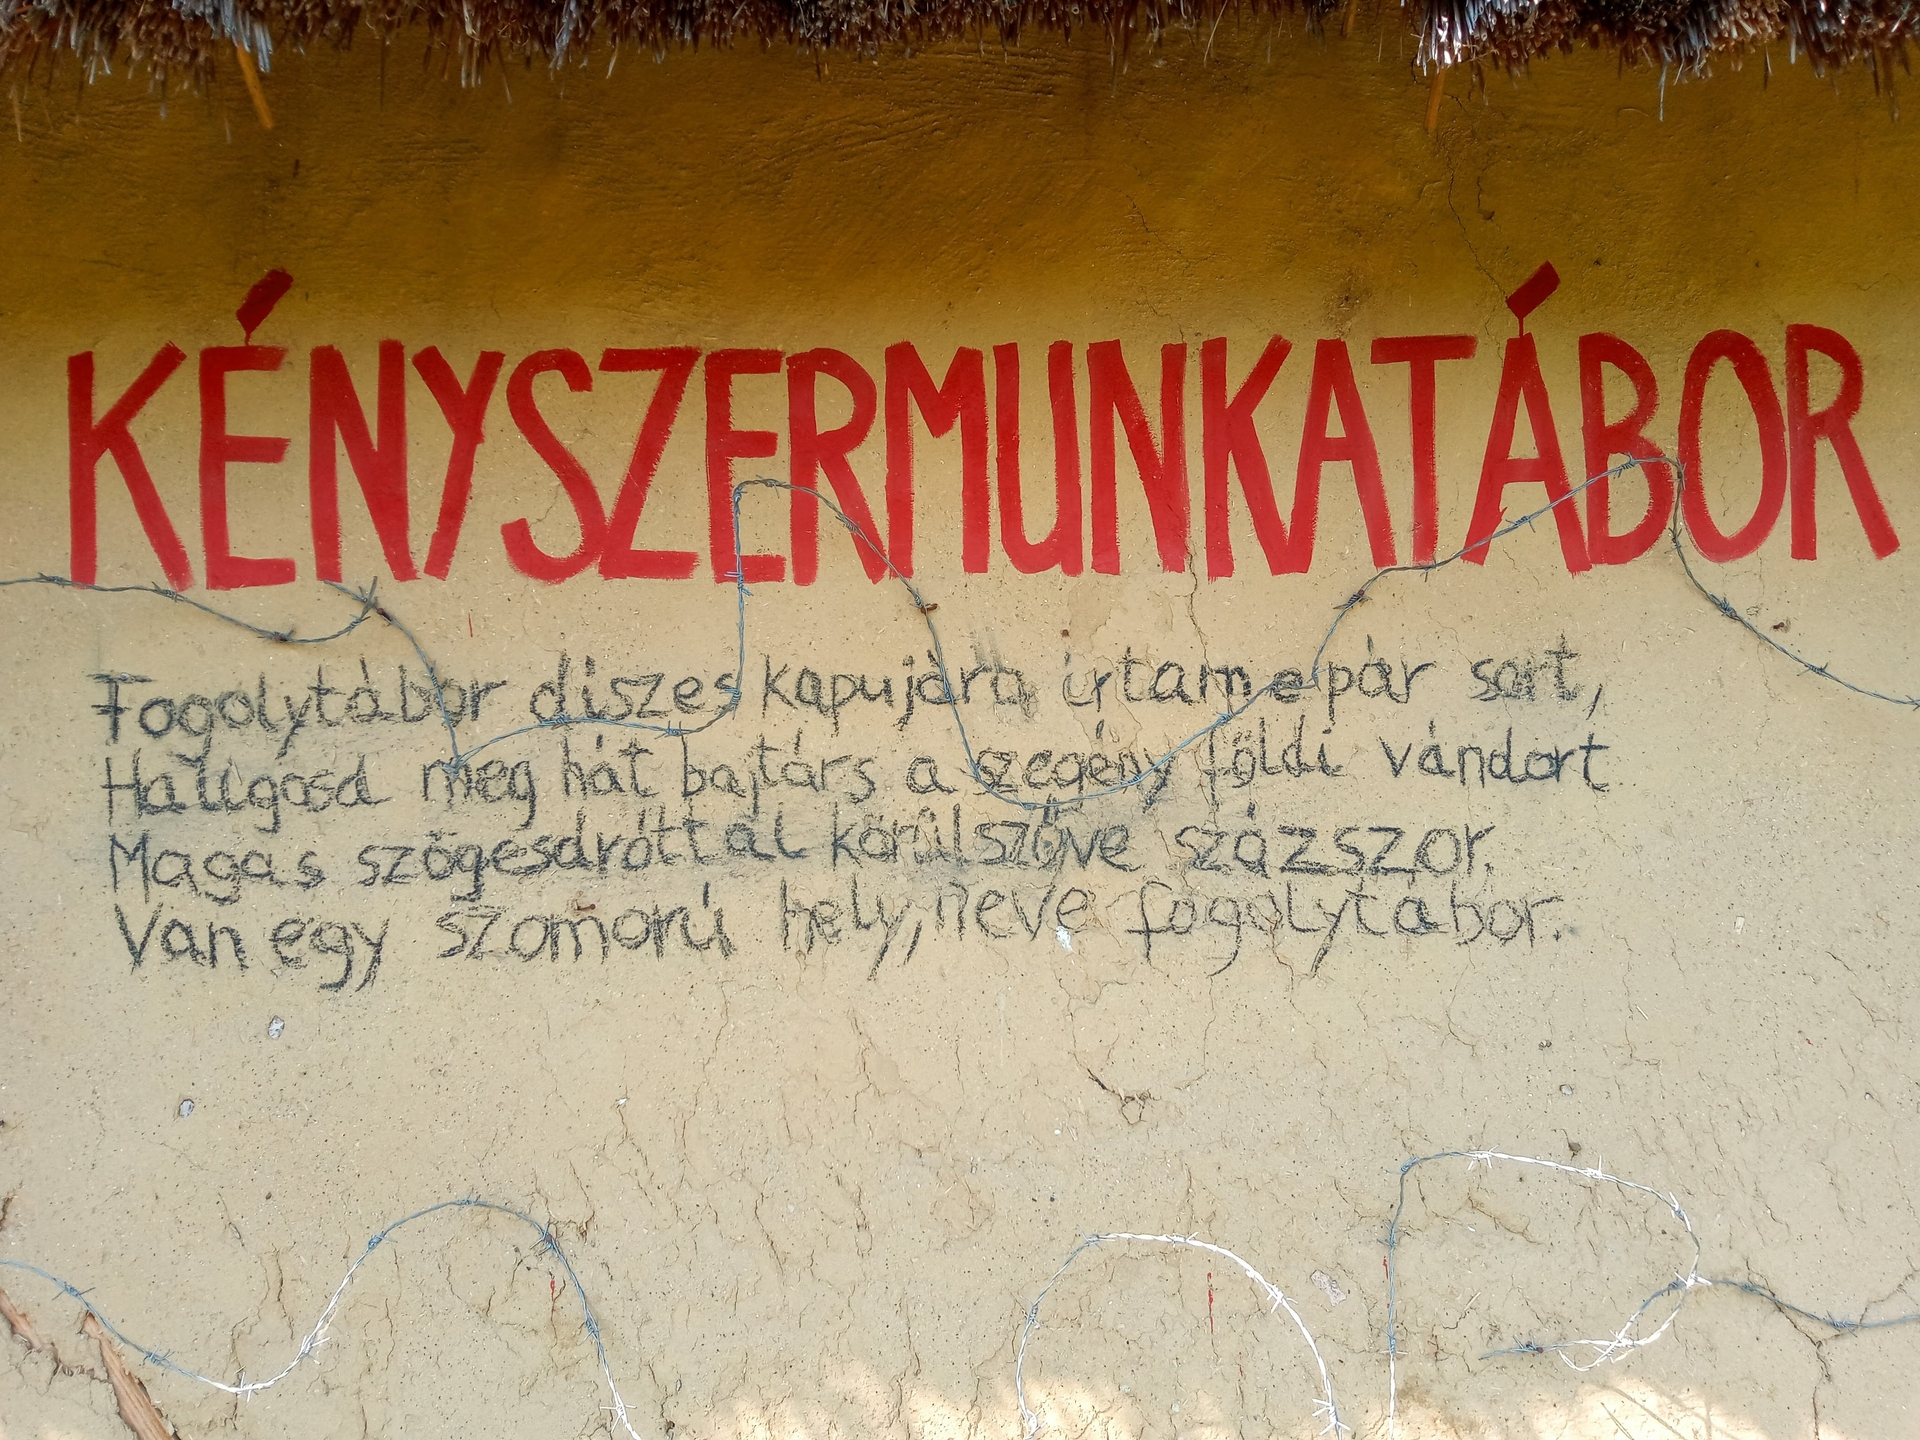 KÉNYSZERMUNKATÁBOR
Fogolytábor díszes kapujára írtam e pár sort,
Hallgasd meg hát bajtárs a szegény földi vándort
Magas szögesdróttal körülszőve százszor.
Van egy szomorú hely, neve fogolytábor.